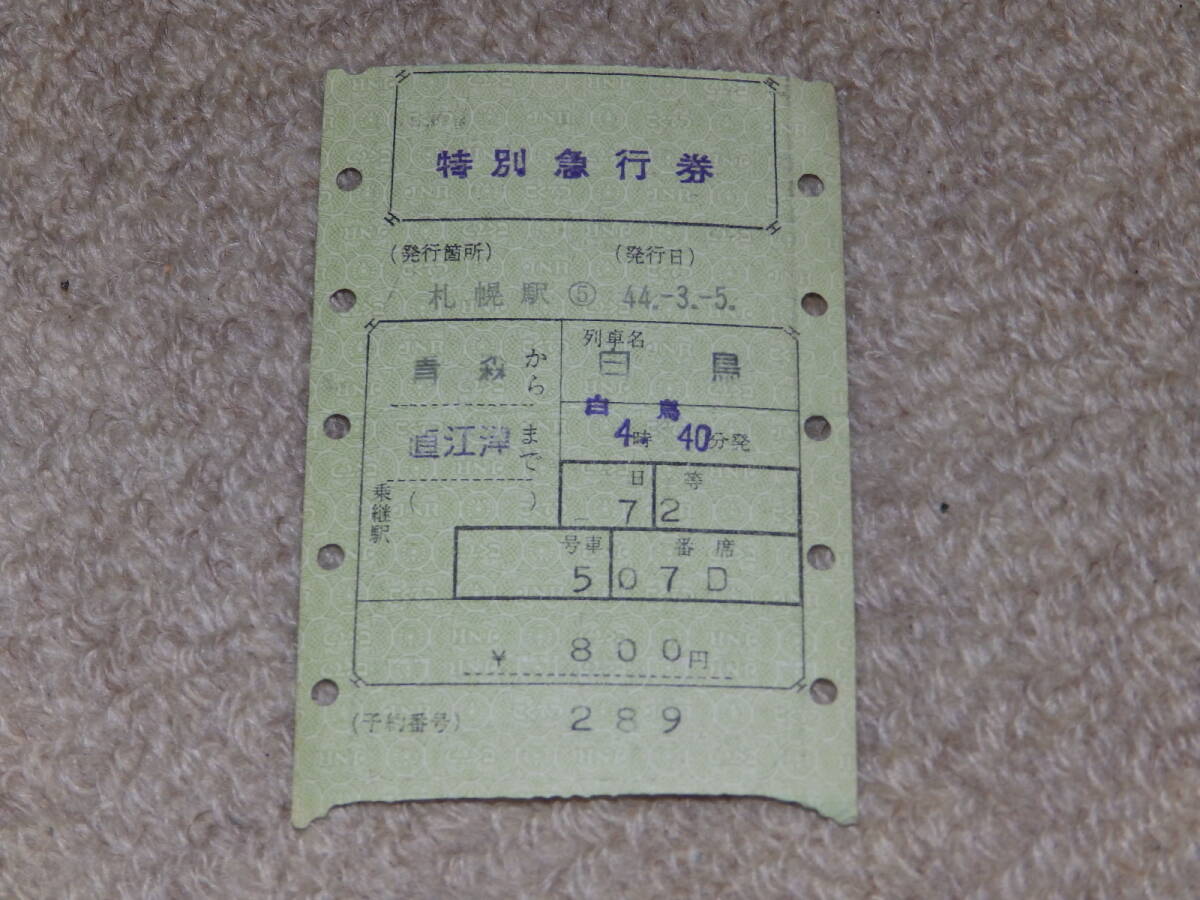 特別急行券
(発行箇所) (発行日)
札幌駅⑤ 44.-3.-5.
青森から
直江津まで
乗継駅 ( )
列車名
白鳥
白鳥
4時40分発
日 等
7 2
号車 番席
5 07D
¥ 800円
(予約番号) 289